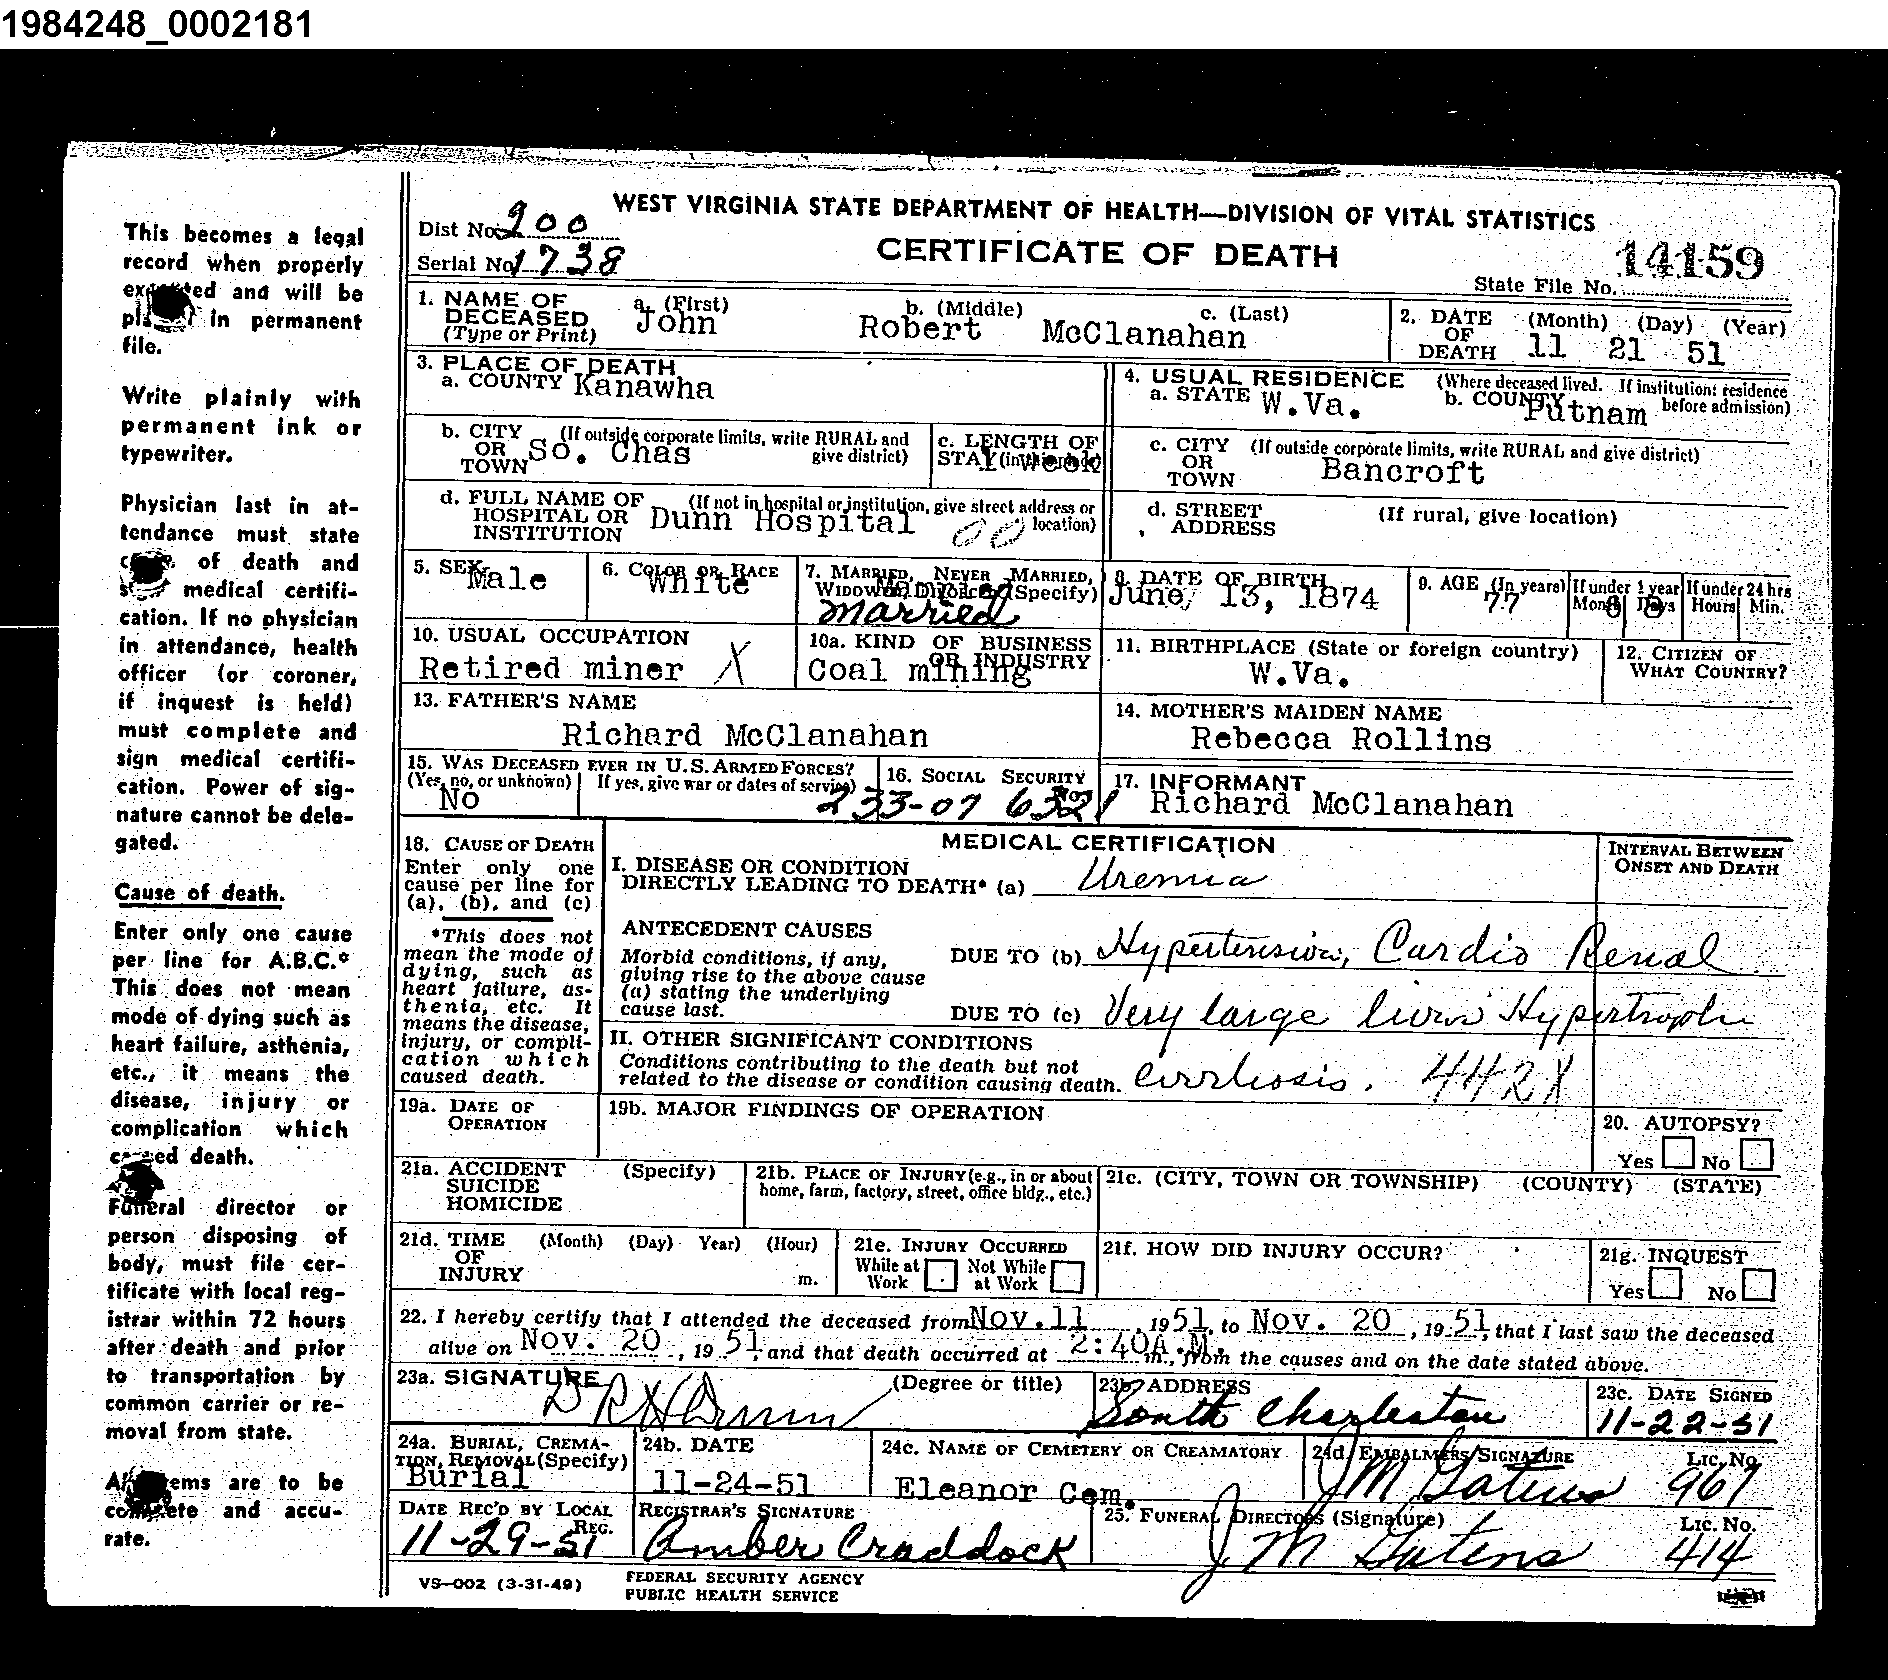 1984248_0002181
This becomes a legal
record when properly
and will be
in permanent
file.
Write plainly with
permanent ink or
typewriter.
Physician last in at-
tendance must state
of death and
medical certifi-
cation. If no physician
in attendance, health
officer (or coroner,
if inquest is held)
must complete and
sign medical certifi-
cation. Power of sig-
nature cannot be dele-
gated.
Cause of death.
Enter only one cause
per line for A.B.C.*
This does not mean
mode of dying such as
heart failure, asthenia,
etc., it means the
disease, injury or
complication which
caused death.
Funeral director or
person disposing of
body, must file cer-
tificate with local reg-
istrar within 72 hours
after death and prior
to transportation by
common carrier or re-
moval from state.
All items are to be
complete and accu-
rate.
WEST VIRGINIA STATE DEPARTMENT OF HEALTH—DIVISION OF VITAL STATISTICS
Dist No. 200
Serial No. 1738
CERTIFICATE OF DEATH
14159
State File No.
1. NAME OF DECEASED (Type or Print) a. (First) John b. (Middle) Robert c. (Last) McClanahan
2. DATE OF DEATH (Month) (Day) (Year) 11 21 51
3. PLACE OF DEATH
a. COUNTY Kanawha
4. USUAL RESIDENCE (Where deceased lived. If institution: residence before admission)
a. STATE W.Va. b. COUNTY Putnam
b. CITY OR TOWN (If outside corporate limits, write RURAL and give district) So. Chas
c. LENGTH OF STAY 1 week
c. CITY OR TOWN (If outside corporate limits, write RURAL and give district) Bancroft
d. FULL NAME OF HOSPITAL OR INSTITUTION (If not in hospital or institution, give street address or location) Dunn Hospital 00
d. STREET ADDRESS (If rural, give location)
5. SEX Male
6. COLOR OR RACE White
7. MARRIED, NEVER MARRIED, WIDOWED, DIVORCED (Specify) Married married
8. DATE OF BIRTH June, 13, 1874
9. AGE (In years) 77 If under 1 year Months Days 8 If under 24 hrs Hours Min.
10. USUAL OCCUPATION Retired miner X
10a. KIND OF BUSINESS OR INDUSTRY Coal mining
11. BIRTHPLACE (State or foreign country) W.Va.
12. CITIZEN OF WHAT COUNTRY?
13. FATHER'S NAME Richard McClanahan
14. MOTHER'S MAIDEN NAME Rebecca Rollins
15. WAS DECEASED EVER IN U.S. ARMED FORCES? (Yes, no, or unknown) No If yes, give war or dates of service)
16. SOCIAL SECURITY No. 233-07 6321
17. INFORMANT Richard McClanahan
18. CAUSE OF DEATH
Enter only one
cause per line for
(a), (b), and (c)
*This does not
mean the mode of
dying, such as
heart failure, as-
thenia, etc. It
means the disease,
injury, or compli-
cation which
caused death.
MEDICAL CERTIFICATION
INTERVAL BETWEEN ONSET AND DEATH
I. DISEASE OR CONDITION
DIRECTLY LEADING TO DEATH* (a) Uremia
ANTECEDENT CAUSES
Morbid conditions, if any,
giving rise to the above cause
(a) stating the underlying
cause last.
DUE TO (b) Hypertension, Cardio Renal
DUE TO (c) Very large liver Hypertrophic
II. OTHER SIGNIFICANT CONDITIONS
Conditions contributing to the death but not
related to the disease or condition causing death. cirrhosis. 442X
19a. DATE OF OPERATION
19b. MAJOR FINDINGS OF OPERATION
20. AUTOPSY? Yes No
21a. ACCIDENT SUICIDE HOMICIDE (Specify)
21b. PLACE OF INJURY (e.g., in or about home, farm, factory, street, office bldg., etc.)
21c. (CITY, TOWN OR TOWNSHIP) (COUNTY) (STATE)
21d. TIME OF INJURY (Month) (Day) Year) (Hour) m.
21e. INJURY OCCURRED While at Work Not While at Work
21f. HOW DID INJURY OCCUR?
21g. INQUEST Yes No
22. I hereby certify that I attended the deceased from Nov. 11, 1951, to Nov. 20, 1951, that I last saw the deceased
alive on Nov. 20, 1951, and that death occurred at 2:40A.M. m., from the causes and on the date stated above.
23a. SIGNATURE (Degree or title)
23b. ADDRESS South Charleston
23c. DATE SIGNED 11-22-51
24a. BURIAL, CREMATION, REMOVAL (Specify) Burial
24b. DATE 11-24-51
24c. NAME OF CEMETERY OR CREAMATORY Eleanor Cem.
24d. EMBALMERS SIGNATURE J M Gatens LIC. NO. 967
DATE REC'D BY LOCAL REG. 11-29-51
REGISTRAR'S SIGNATURE Amber Craddock
25. FUNERAL DIRECTORS (Signature) J M Gatens LIC. NO. 414
VS—002 (3-31-49)
FEDERAL SECURITY AGENCY
PUBLIC HEALTH SERVICE